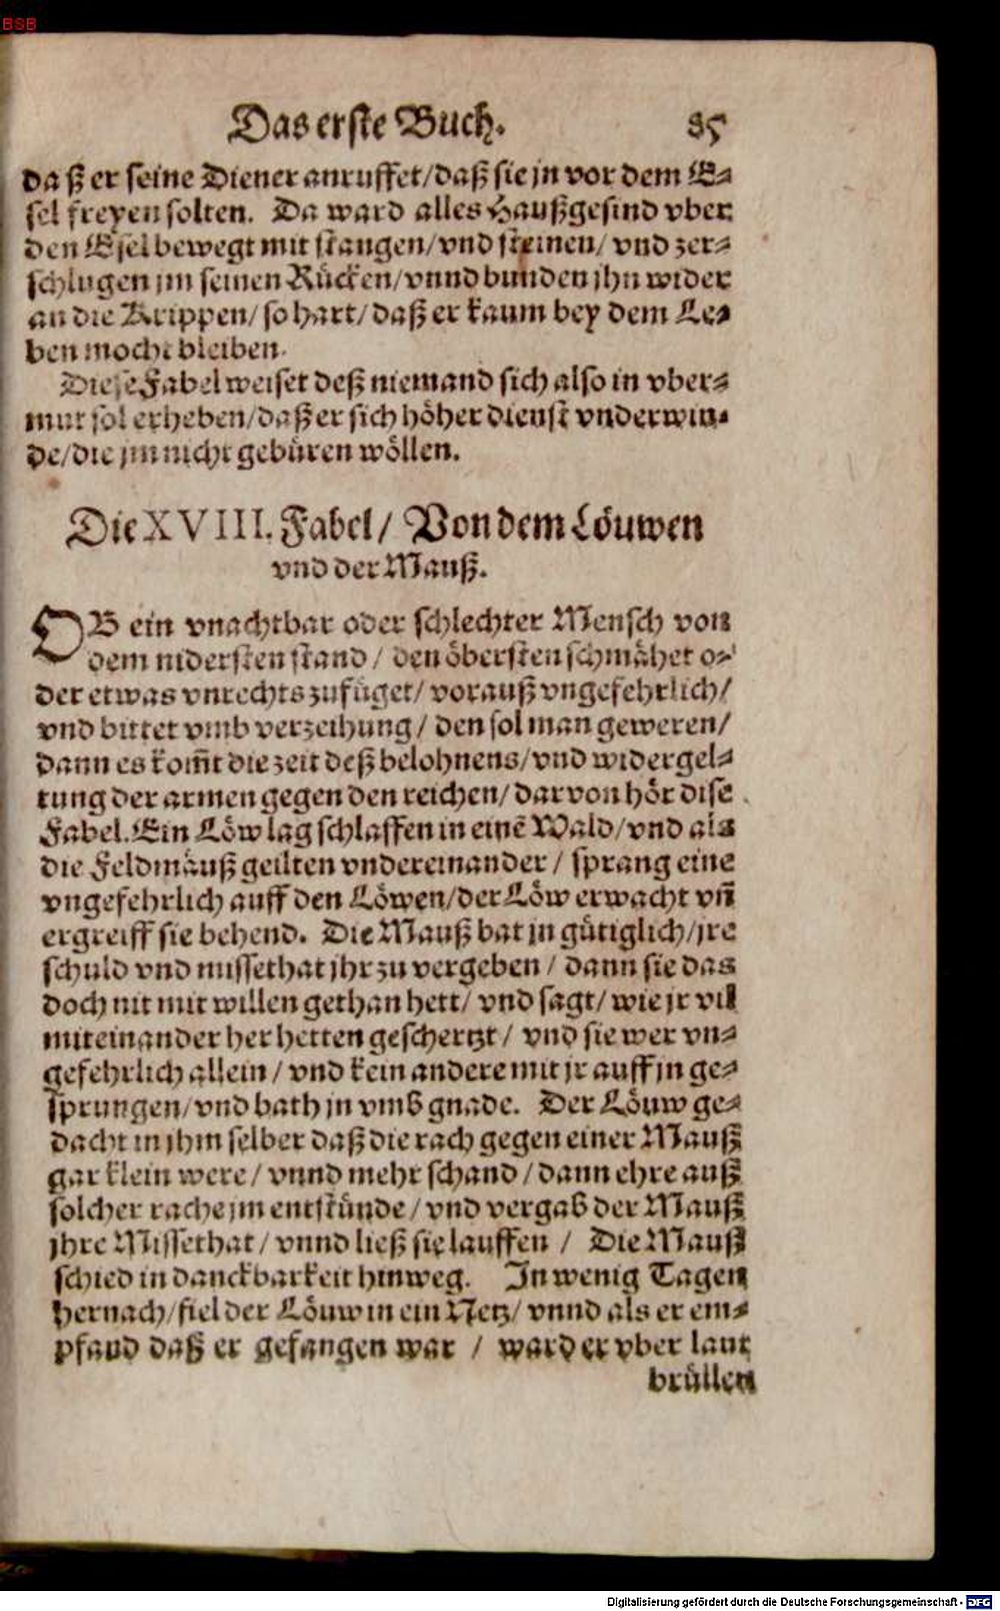 BSB
Das erste Buch. 85
daß er seine Diener anruffet/daß sie jn vor dem E-
sel freyen solten. Da ward alles Haußgesind vber
den Esel bewegt mit stangen/vnd steinen/ vnd zer-
schlugen jm seinen Rücken/vnnd bunden jhn wider
an die Krippen/ so hart/ daß er kaum bey dem Le-
ben mocht bleiben.
Diese Fabel weiset deß niemand sich also in vber-
mut sol erheben/daß er sich höher dienst vnderwin-
de/die jm nicht gebüren wöllen.
Die XVIII. Fabel/ Von dem Löuwen
vnd der Mauß.
OB ein vnachtbar oder schlechter Mensch von
dem nidersten stand / den öbersten schmähet o-
der etwas vnrechts zufüget/ vorauß vngefehrlich/
vnd bittet vmb verzeihung / den sol man geweren/
dann es kom̃t die zeit deß belohnens/vnd widergel-
tung der armen gegen den reichen/ darvon hör dise
Fabel. Ein Löw lag schlaffen in einẽ Wald/vnd als
die Feldmäuß geilten vndereinander / sprang eine
vngefehrlich auff den Löwen/der Löw erwacht vñ
ergreiff sie behend. Die Mauß bat jn gütiglich/jre
schuld vnd missethat jhr zu vergeben / dann sie das
doch nit mit willen gethan hett/ vnd sagt/ wie jr vil
miteinander her hetten geschertzt / vnd sie wer vn-
gefehrlich allein / vnd kein andere mit jr auff jn ge-
sprungen/vnd bath jn vmb gnade. Der Löuw ge-
dacht in jhm selber daß die rach gegen einer Mauß
gar klein were / vnnd mehr schand / dann ehre auß
solcher rache jm entstünde / vnd vergab der Mauß
jhre Missethat / vnnd ließ sie lauffen / Die Mauß
schied in danckbarkeit hinweg. In wenig Tagen
hernach/ fiel der Löuw in ein Netz/ vnnd als er em-
pfand daß er gefangen war / ward er vber laut
brüllen
Digitalisierung gefördert durch die Deutsche Forschungsgemeinschaft - DFG